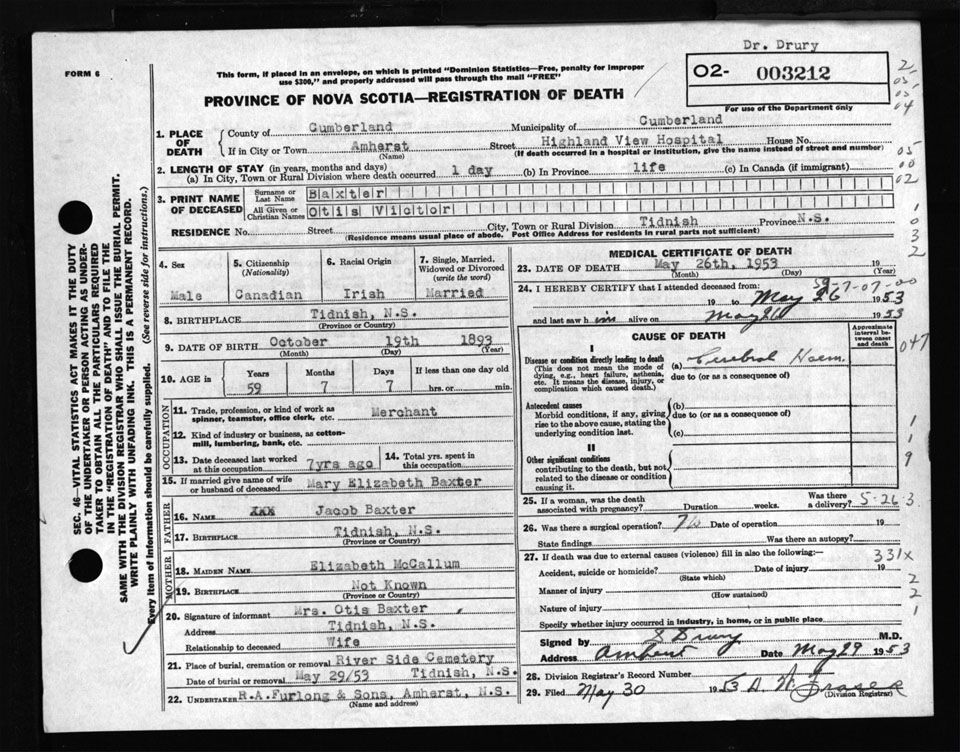 Dr. Drury
FORM 6
This form, if placed in an envelope, on which is printed "Dominion Statistics—Free, penalty for improper
use $300," and properly addressed will pass through the mail "FREE"
O2- 003212
For use of the Department only
PROVINCE OF NOVA SCOTIA—REGISTRATION OF DEATH
2
05
05
04
05
00
02
1
0
3
2
SEC. 46—VITAL STATISTICS ACT MAKES IT THE DUTY
OF THE UNDERTAKER OR PERSON ACTING AS UNDER-
TAKER TO OBTAIN ALL THE PARTICULARS REQUIRED
IN THE "REGISTRATION OF DEATH" AND TO FILE THE
SAME WITH THE DIVISION REGISTRAR WHO SHALL ISSUE THE BURIAL PERMIT.
WRITE PLAINLY WITH UNFADING INK. THIS IS A PERMANENT RECORD.
Every item of Information should be carefully supplied. (See reverse side for instructions.)
1. PLACE OF DEATH
County of Cumberland Municipality of Cumberland
If in City or Town Amherst Street Highland View Hospital House No.
(Name) (If death occurred in a hospital or institution, give the name instead of street and number)
2. LENGTH OF STAY (in years, months and days)
(a) In City, Town or Rural Division where death occurred 1 day (b) In Province life (c) In Canada (if immigrant)
3. PRINT NAME OF DECEASED
Surname or Last Name Baxter
All Given or Christian Names Otis Victor
RESIDENCE No. Street City, Town or Rural Division Tidnish Province N.S.
(Residence means usual place of abode. Post Office Address for residents in rural parts not sufficient)
4. Sex
Male
5. Citizenship
(Nationality)
Canadian
6. Racial Origin
Irish
7. Single, Married,
Widowed or Divorced
(write the word)
Married
8. BIRTHPLACE Tidnish, N.S.
(Province or Country)
9. DATE OF BIRTH October 19th 1893
(Month) (Day) (Year)
10. AGE in
Years Months Days If less than one day old
59 7 7 hrs. or min.
OCCUPATION
11. Trade, profession, or kind of work as
spinner, teamster, office clerk, etc. Merchant
12. Kind of industry or business, as cotton-
mill, lumbering, bank, etc.
13. Date deceased last worked
at this occupation 7yrs ago
14. Total yrs. spent in
this occupation
15. If married give name of wife
or husband of deceased Mary Elizabeth Baxter
FATHER
16. NAME XXX Jacob Baxter
17. BIRTHPLACE Tidnish, N.S.
(Province or Country)
MOTHER
18. MAIDEN NAME Elizabeth McCallum
19. BIRTHPLACE Not Known
(Province or Country)
20. Signature of informant Mrs. Otis Baxter
Address Tidnish, N.S.
Relationship to deceased Wife
21. Place of burial, cremation or removal River Side Cemetery
Date of burial or removal May 29/53 Tidnish, N.S.
22. UNDERTAKER R.A.Furlong & Sons, Amherst, N.S.
(Name and address)
MEDICAL CERTIFICATE OF DEATH
23. DATE OF DEATH May 26th, 1953 19
(Month) (Day) (Year)
59-7-07-00
24. I HEREBY CERTIFY that I attended deceased from:
19 to May 26 1953
and last saw h im alive on May 26 1953
CAUSE OF DEATH
Approximate interval between onset and death
I
Disease or condition directly leading to death
(This does not mean the mode of
dying, e.g., heart failure, asthenia,
etc. It means the disease, injury, or
complication which caused death.)
(a) Cerebral Haem.
due to (or as a consequence of)
047
Antecedent causes
Morbid conditions, if any, giving
rise to the above cause, stating the
underlying condition last.
(b)
due to (or as a consequence of)
(c)
1
1
9
II
Other significant conditions
contributing to the death, but not
related to the disease or condition
causing it.
25. If a woman, was the death
associated with pregnancy? Duration weeks. Was there
a delivery? 5-26-3
26. Was there a surgical operation? No Date of operation 19
State findings Was there an autopsy?
27. If death was due to external causes (violence) fill in also the following:—
331X
Accident, suicide or homicide? Date of injury 19
(State which)
Manner of injury
(How sustained)
Nature of injury
2
2
1
Specify whether injury occurred in industry, in home, or in public place
Signed by S Drury M.D.
Address Amherst Date May 29 1953
28. Division Registrar's Record Number
29. Filed May 30 1953
(Division Registrar)